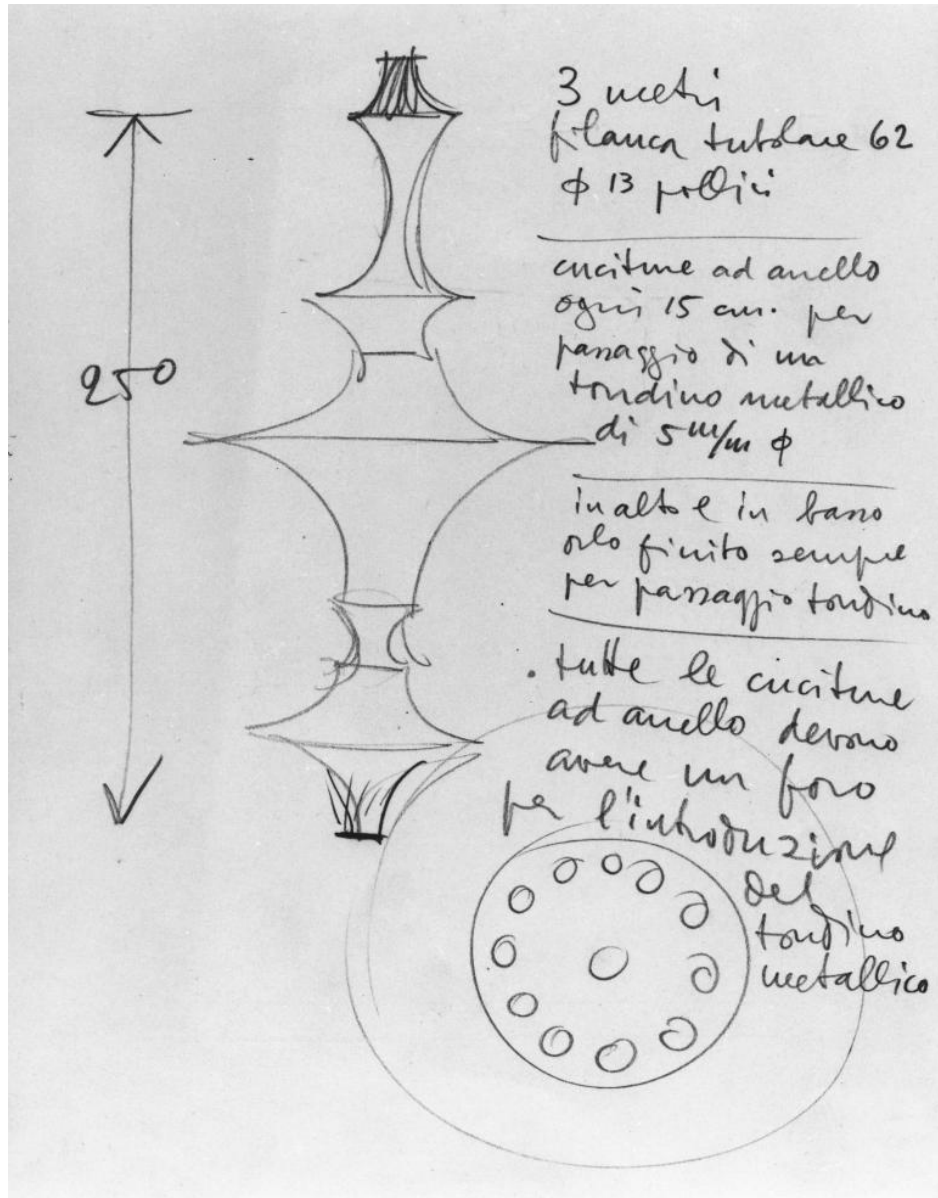 3 metri
filanca tubolare 62
ϕ 13 pollici
cuciture ad anello
ogni 15 cm. per
passaggio di un
tondino metallico
di 5 m/m ϕ
250
in alto e in basso
orlo finito sempre
per passaggio tondino
. tutte le cuciture
ad anello devono
avere un foro
per l'introduzione
del
tondino
metallico